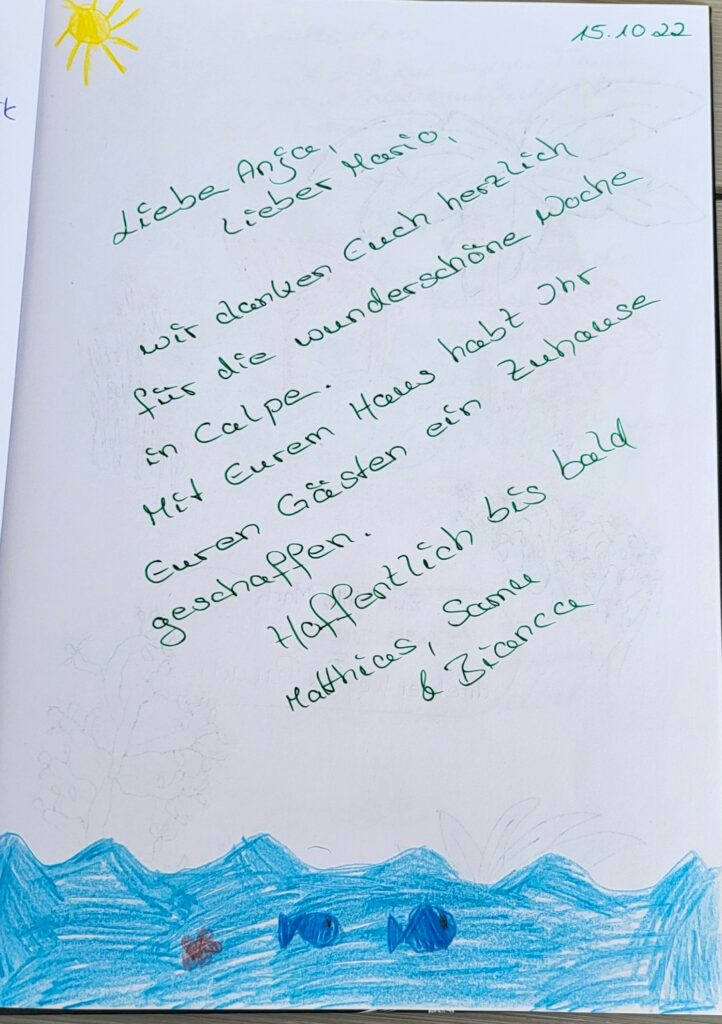 15.10.22
Liebe Anja,
Lieber Mario,
wir danken Euch herzlich
für die wunderschöne Woche
in Calpe.
Mit Eurem Haus habt Ihr
Euren Gästen ein Zuhause
geschaffen.
Hoffentlich bis bald
Matthias,
& Bianca